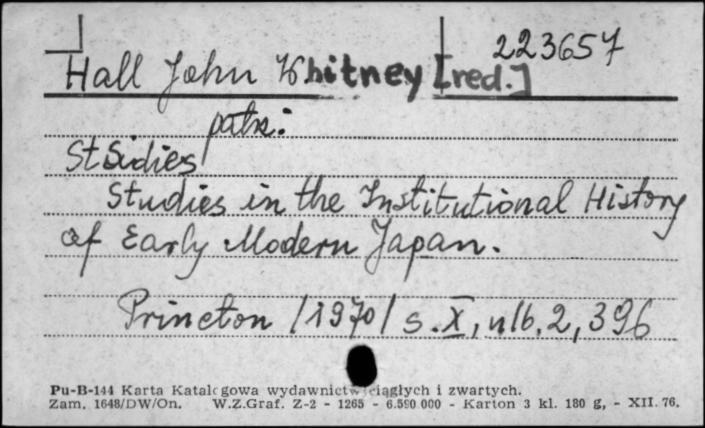 223657
Hall John Whitney [red.]
patrz:
Studies
Studies in the Institutional History
of Early Modern Japan.
Princeton /1970/ s.X, nlb.2, 396
Pu-B-144 Karta Katalogowa wydawnictw ciągłych i zwartych.
Zam. 1648/DW/On. W.Z.Graf. Z-2 - 1265 - 6.590 000 - Karton 3 kl. 180 g, - XII. 76.